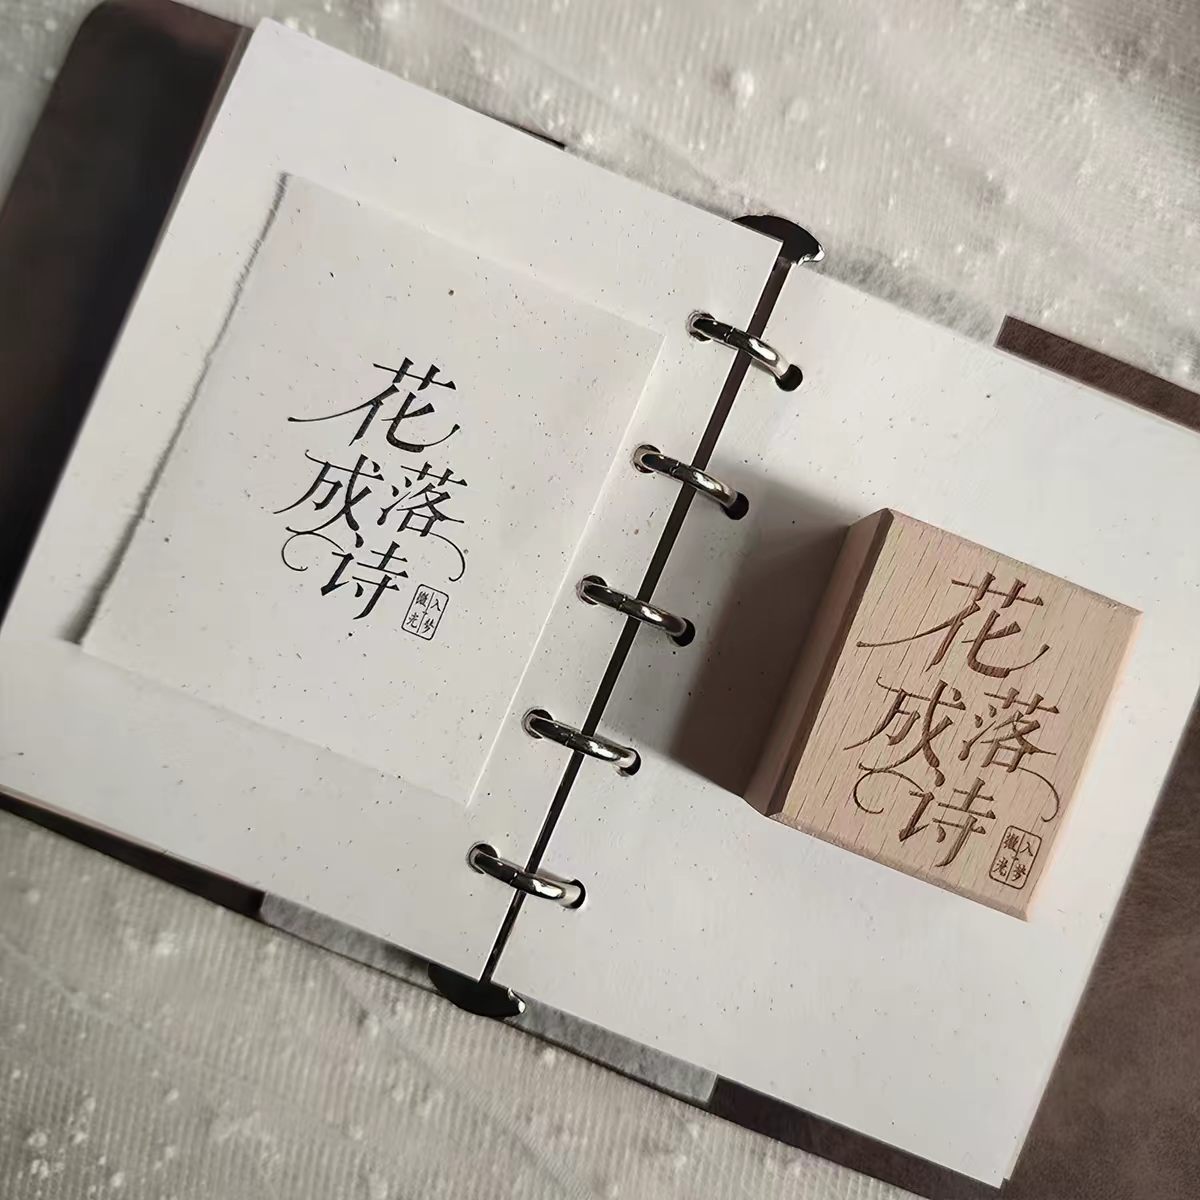 花落成诗
入梦微光
花落成诗
入梦微光